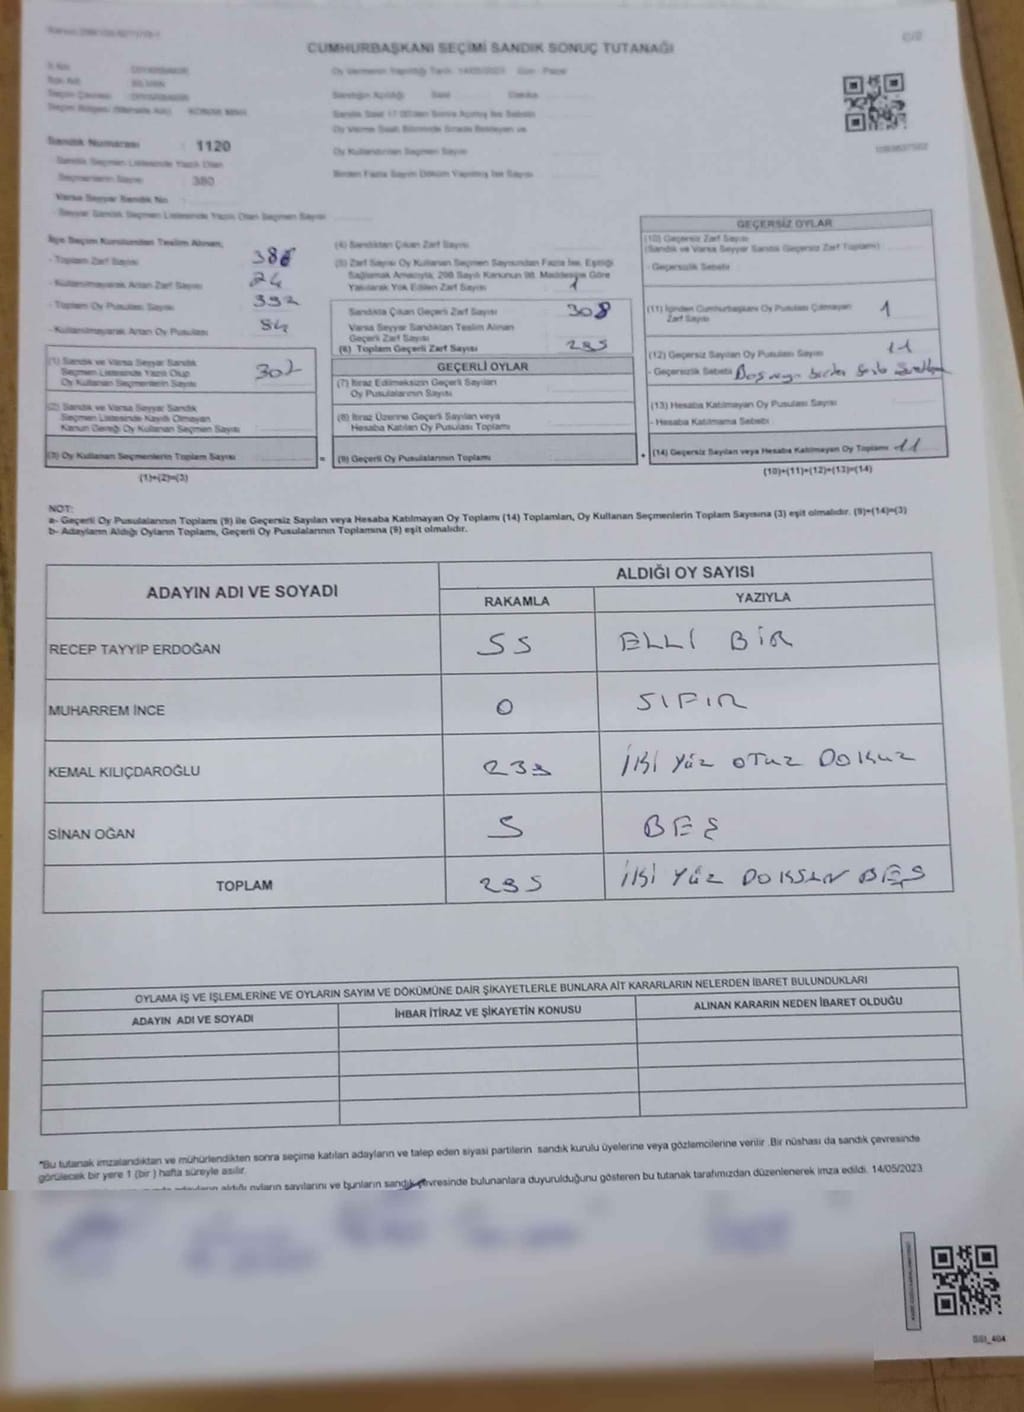 CUMHURBAŞKANI SEÇİMİ SANDIK SONUÇ TUTANAĞI
Oy Vermenin Yapıldığı Tarih: 14/05/2023 Gün: Pazar
Sandığın Açıldığı Saat Dakika
Sandık Numarası : 1120
Sandık Seçmen Listesinde Yazılı Olan
Seçmenlerin Sayısı 380
Oy Kullandırılan Seçmen Sayısı
Birden Fazla Sayım Döküm Yapılmış İse Sayısı
Varsa Seyyar Sandık No
- Seyyar Sandık Seçmen Listesinde Yazılı Olan Seçmen Sayısı
İlçe Seçim Kurulundan Teslim Alınan;
- Toplam Zarf Sayısı
- Kullanılmayarak Artan Zarf Sayısı
- Toplam Oy Pusulası Sayısı 392
- Kullanılmayarak Artan Oy Pusulası
(1) Sandık ve Varsa Seyyar Sandık
Seçmen Listesinde Yazılı Olup
Oy Kullanan Seçmenlerin Sayısı 302
(2) Sandık ve Varsa Seyyar Sandık
Seçmen Listesinde Kayıtlı Olmayan
Kanun Gereği Oy Kullanan Seçmen Sayısı
(3) Oy Kullanan Seçmenlerin Toplam Sayısı =
(1)+(2)=(3)
(4) Sandıktan Çıkan Zarf Sayısı
(5) Zarf Sayısı Oy Kullanan Seçmen Sayısından Fazla İse, Eşitliği
Sağlamak Amacıyla, 298 Sayılı Kanunun 98. Maddesine Göre
Yakılarak Yok Edilen Zarf Sayısı 1
Sandıkta Çıkan Geçerli Zarf Sayısı 308
Varsa Seyyar Sandıktan Teslim Alınan
Geçerli Zarf Sayısı
(6) Toplam Geçerli Zarf Sayısı 295
GEÇERLİ OYLAR
(7) İtiraz Edilmeksizin Geçerli Sayılan
Oy Pusulalarının Sayısı
(8) İtiraz Üzerine Geçerli Sayılan veya
Hesaba Katılan Oy Pusulası Toplamı
(9) Geçerli Oy Pusulalarının Toplamı +
GEÇERSİZ OYLAR
(10) Geçersiz Zarf Sayısı
(Sandık ve Varsa Seyyar Sandık Geçersiz Zarf Toplamı)
- Geçersizlik Sebebi
(11) İçinden Cumhurbaşkanı Oy Pusulası Çıkmayan
Zarf Sayısı 1
(12) Geçersiz Sayılan Oy Pusulası Sayısı 11
- Geçersizlik Sebebi Boş veya birden fazla
(13) Hesaba Katılmayan Oy Pusulası Sayısı
- Hesaba Katılmama Sebebi
(14) Geçersiz Sayılan veya Hesaba Katılmayan Oy Toplamı 11
(10)+(11)+(12)+(13)=(14)
NOT:
a- Geçerli Oy Pusulalarının Toplamı (9) ile Geçersiz Sayılan veya Hesaba Katılmayan Oy Toplamı (14) Toplamları, Oy Kullanan Seçmenlerin Toplam Sayısına (3) eşit olmalıdır. (9)+(14)=(3)
b- Adayların Aldığı Oyların Toplamı, Geçerli Oy Pusulalarının Toplamına (9) eşit olmalıdır.
ADAYIN ADI VE SOYADI ALDIĞI OY SAYISI
RAKAMLA YAZIYLA
RECEP TAYYİP ERDOĞAN ELLİ BİR
MUHARREM İNCE 0 SIFIR
KEMAL KILIÇDAROĞLU 239 İKİ YÜZ OTUZ DOKUZ
SİNAN OĞAN 5 BEŞ
TOPLAM 295 İKİ YÜZ DOKSAN BEŞ
OYLAMA İŞ VE İŞLEMLERİNE VE OYLARIN SAYIM VE DÖKÜMÜNE DAİR ŞİKAYETLERLE BUNLARA AİT KARARLARIN NELERDEN İBARET BULUNDUKLARI
ADAYIN ADI VE SOYADI İHBAR İTİRAZ VE ŞİKAYETİN KONUSU ALINAN KARARIN NEDEN İBARET OLDUĞU
*Bu tutanak imzalandıktan ve mühürlendikten sonra seçime katılan adayların ve talep eden siyasi partilerin sandık kurulu üyelerine veya gözlemcilerine verilir .Bir nüshası da sandık çevresinde
görülecek bir yere 1 (bir ) hafta süreyle asılır.
adayların aldığı oyların sayılarını ve bunların sandık çevresinde bulunanlara duyurulduğunu gösteren bu tutanak tarafımızdan düzenlenerek imza edildi. 14/05/2023